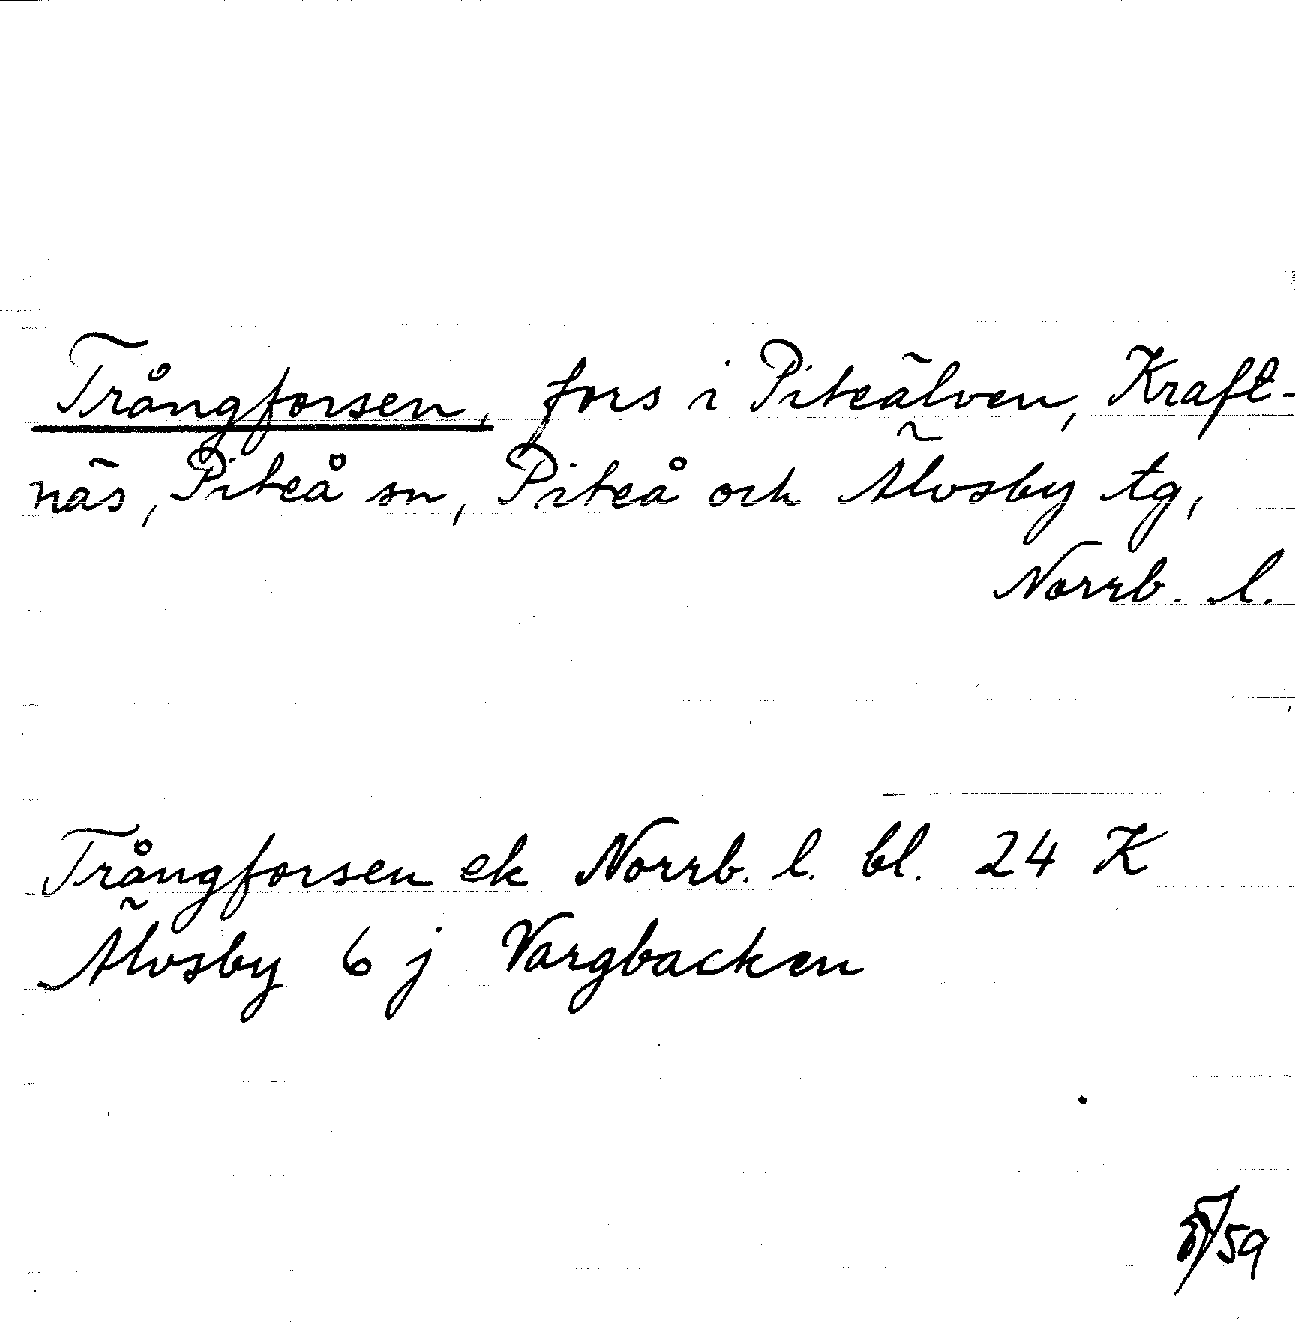 Trångforsen, fors i Piteälven, Kraft-
näs, Piteå sn, Piteå och Älvsby tg,
Norrb. l.
Trångforsen ek Norrb. l. bl. 24 K
Älvsby 6 j Vargbacken
/59